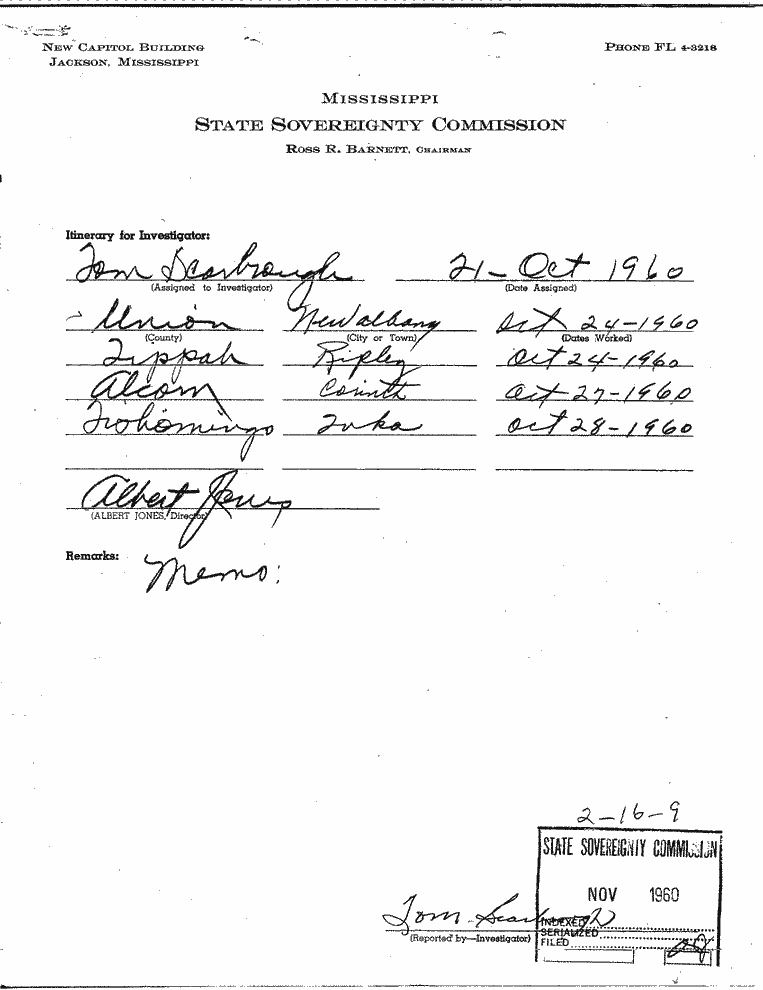 NEW CAPITOL BUILDING PHONE FL 4-3218
JACKSON, MISSISSIPPI
MISSISSIPPI
STATE SOVEREIGNTY COMMISSION
ROSS R. BARNETT, CHAIRMAN
Itinerary for Investigator:
Tom Scarbrough 21- Oct 1960
(Assigned to Investigator) (Date Assigned)
Union New albany Oct 24-1960
(County) (City or Town) (Dates Worked)
Tippah Ripley Oct 24-1960
Alcorn Corinth Oct-27-1960
Tishomingo Iuka Oct 28-1960
Albert Jones
(ALBERT JONES, Director)
Remarks:
Memo:
2-16-9
STATE SOVEREIGNTY COMMISSION
NOV 1960
Tom Scarbrough
INDEXED
(Reported by—Investigator) SERIALIZED
FILED